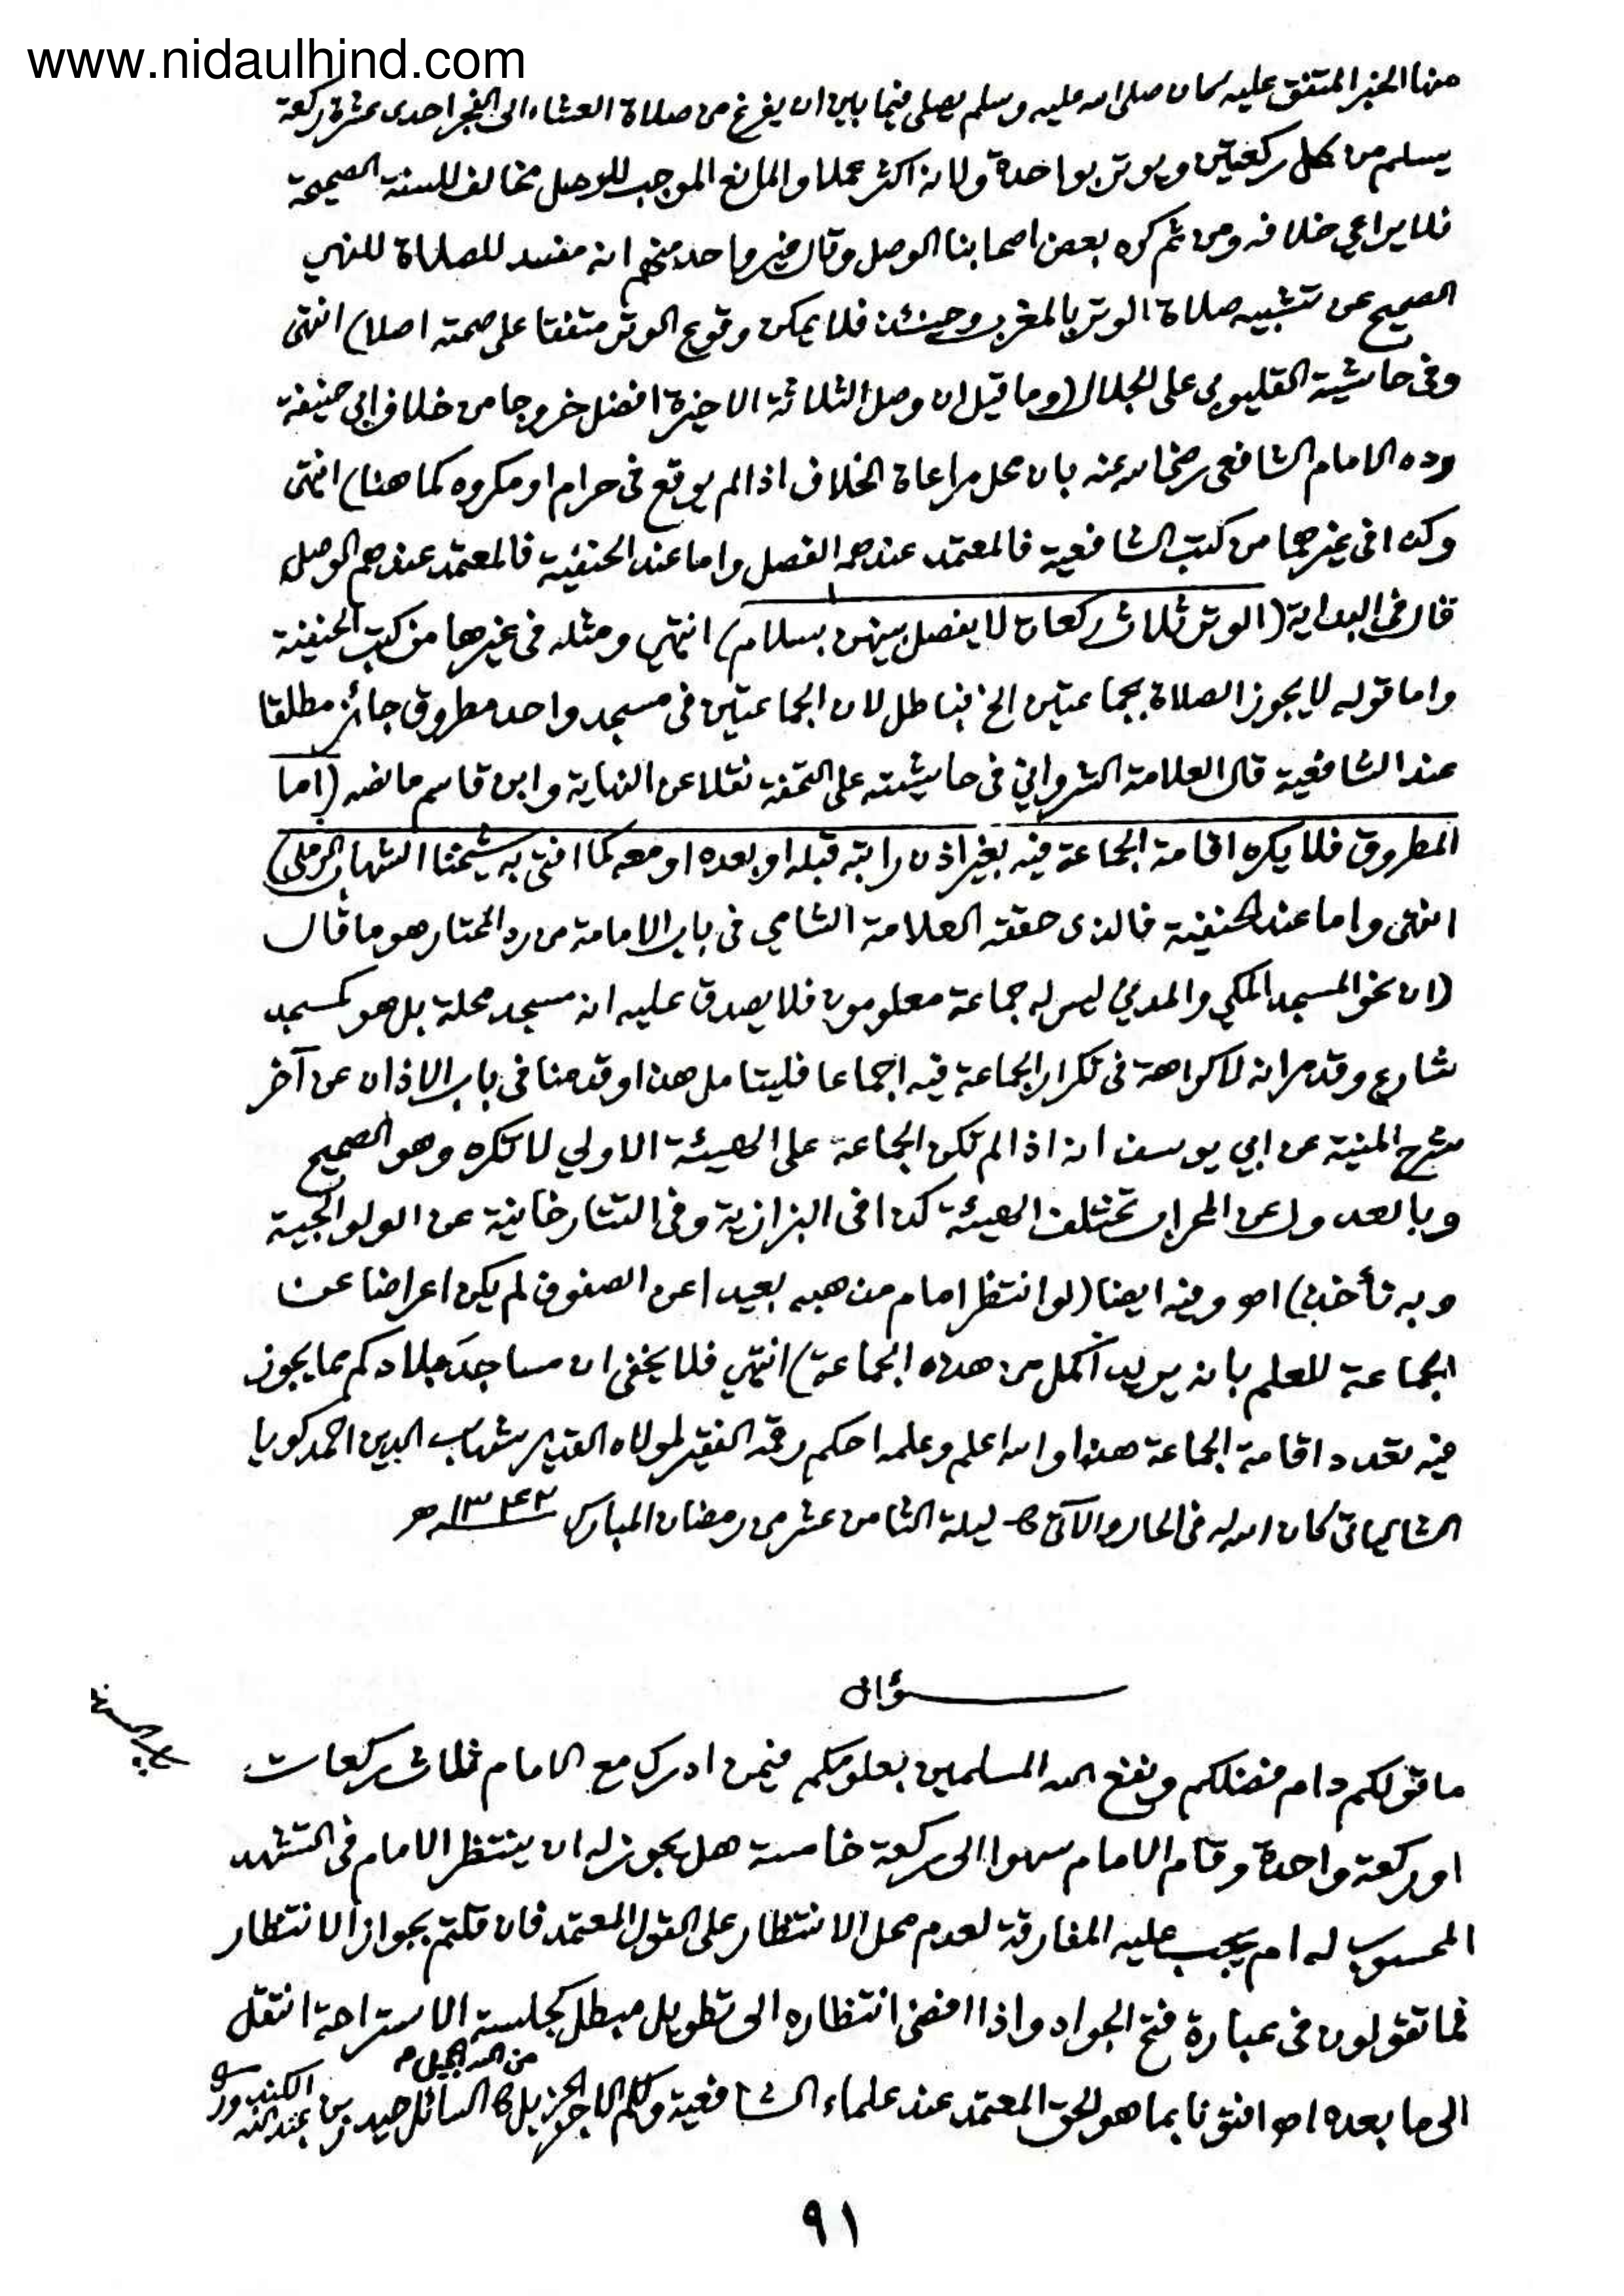 www.nidaulhind.com
منها الخبر المتفق عليه كان صلى الله عليه وسلم يصلى فيما بين ان يفرغ من صلاة العشاء الى الفجر احدى عشرة ركعة
يسلم من كل ركعتين ويوتر بواحدة ولانه اكثر عملا والمانع الموجب للوصل مخالف للسنة الصحيحة
فلا يراعي خلافه ومن ثم كره بعض اصحابنا الوصل وقال غير واحد منهم انه مفسد للصلاة للنهي
الصحيح عن تشبيه صلاة الوتر بالمغرب وحينئذ فلا يمكن وقوع الوتر متفقا على صحته اصلا) انتهى
وفى حاشية القليوبي على الجلال (وما قيل ان وصل الثلاثة الاخيرة افضل خروجا من خلاف ابي حنيفة
رده الامام الشافعى رضي الله عنه بان محل مراعاة الخلاف اذا لم يوقع فى حرام او مكروه كما هنا) انتهى
وكذا فى غيرهما من كتب الشافعية فالمعتمد عندهم الفصل واما عند الحنفية فالمعتمد عندهم الوصل
قال فى البداية (الوتر ثلاث ركعات لا يفصل بينهن بسلام) انتهي ومثله فى غيرها من كتب الحنفية
واما قوله لا يجوز الصلاة بجماعتين الخ فباطل لان الجماعتين فى مسجد واحد مطروق جائز مطلقا
عند الشافعية قال العلامة الشرواني فى حاشيته على التحفة نقلا عن النهاية وابن قاسم ما نصه (اما
المطروق فلا يكره اقامة الجماعة فيه بغير اذن راتبه قبله او بعده او معه كما افتى به شيخنا الشهاب الرملي)
انتهى واما عند الحنفية فالذى حققه العلامة الشامي فى باب الامامة من رد المحتار هو ما قال
(ان نحو المسجد المكي والمدني ليس له جماعة معلومون فلا يصدق عليه انه مسجد محلة بل هو كمسجد
شارع وقد مر انه لا كراهة فى تكرار الجماعة فيه اجماعا فليتامل هذا وقدمنا فى باب الاذان عن آخر
شرح المنية عن ابي يوسف انه اذا لم تكن الجماعة على الهيئة الاولي لا تكره وهو الصحيح
وبالعدول عن المحراب تختلف الهيئة كذا فى البزازية وفى التتارخانية عن الولوالجية
وبه نأخذ) اهـ وفيه ايضا (لو انتظر امام مذهبه بعيدا عن الصفوف لم يكن اعراضا عن
الجماعة للعلم بانه يريد اكمل من هذه الجماعة) انتهي فلا يخفى ان مساجد بلادكم مما يجوز
فيه تعدد اقامة الجماعة هذا والله اعلم وعلمه احكم رقمه الفقير لمولاه القدير شهاب الدين احمد كويا
الشالياتى كان الله له فى الحال والآتى ليلة الثامن عشر من رمضان المبارك ١٣٤٢ هـ
سؤال
ما قولكم دام فضلكم ونفع الله المسلمين بعلومكم فيمن ادرك مع الامام ثلاث ركعات
او ركعة واحدة وقام الامام سهوا الى ركعة خامسة هل يجوز له ان ينتظر الامام فى التشهد
المحسوب له ام يجب عليه المفارقة لعدم محل الانتظار على القول المعتمد فان قلتم بجواز الانتظار
فما تقولون فى عبارة فتح الجواد واذا افضى انتظاره الى تطويل مبطل كجلسة الاستراحة انتقل
الى ما بعده اهـ افتونا بما هو الحق المعتمد عند علماء الشافعية ولكم الاجر الجزيل من الله الجليل السائل حيدر بن عبد الله
٩١